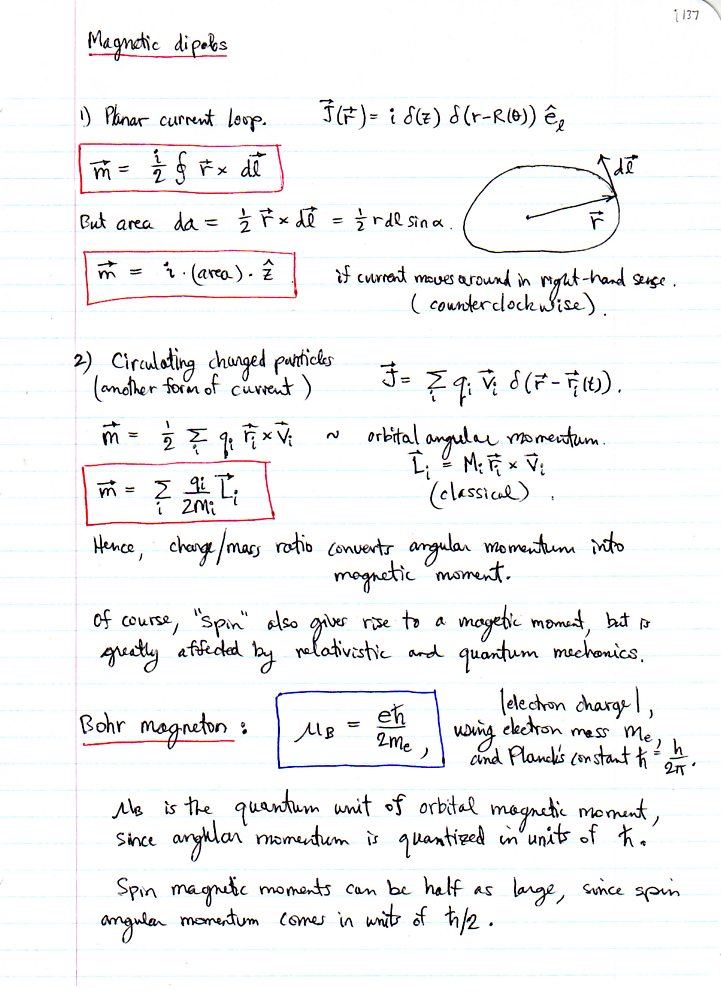 i 137
Magnetic dipoles
1) Planar current loop. J⃗(r⃗) = i δ(z) δ(r-R(θ)) ê_ℓ
m⃗ = i/2 ∮ r⃗ × dℓ⃗
dℓ⃗
r⃗
But area da = ½ r⃗ × dℓ⃗ = ½ r dℓ sin α.
m⃗ = i·(area)·ẑ if current moves around in right-hand sense.
(counterclockwise).
2) Circulating charged particles
(another form of current) J⃗ = Σ_i q_i v⃗_i δ(r⃗ - r⃗_i(t)).
m⃗ = ½ Σ_i q_i r⃗_i × v⃗_i ~ orbital angular momentum.
L⃗_i = M_i r⃗_i × v⃗_i
(classical).
m⃗ = Σ_i q_i/2M_i L⃗_i
Hence, charge/mass ratio converts angular momentum into
magnetic moment.
Of course, "spin" also gives rise to a magetic moment, but is
greatly affected by relativistic and quantum mechanics.
Bohr magneton: μ_B = eħ/2m_e,
|electron charge|,
using electron mass m_e,
and Planck's constant ħ = h/2π.
μ_B is the quantum unit of orbital magnetic moment,
since angular momentum is quantized in units of ħ.
Spin magnetic moments can be half as large, since spin
angular momentum comes in units of ħ/2.